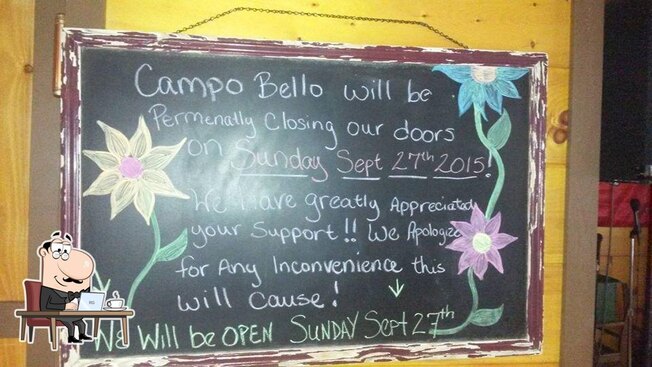 Campo Bello will be
Permenatly Closing our doors
on Sunday Sept 27th 2015!
We Have greatly Appreciated
your Support!! We Apologize
for Any Inconvenience this
will Cause!
We Will be OPEN SUNDAY Sept 27th